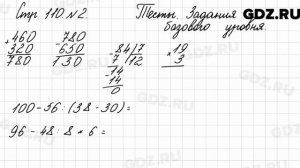 Стр 110 №2.
Тесты. Задания
базового уровня.
GDZ.RU
+460
320
780
-780
650
130
-84|7
7 |12
-14
14
0
×19
3
100-56:(38-30)=
96-48:8×6=